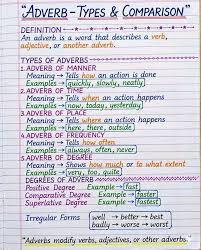 "ADVERB - TYPES & COMPARISON"
DEFINITION
An adverb is a word that describes a verb,
adjective, or another adverb.
TYPES OF ADVERBS
1. ADVERB OF MANNER
Meaning → Tells how an action is done
Examples → quickly, slowly, neatly
2. ADVERB OF TIME
Meaning → Tells when an action happens
Examples → now, today, yesterday
3. ADVERB OF PLACE
Meaning → Tells where an action happens
Examples → here, there, outside
4. ADVERB OF FREQUENCY
Meaning → Tells how often
Examples → always, often, never
5. ADVERB OF DEGREE
Meaning → Shows how much or to what extent
Examples → very, too, quite
DEGREES OF ADVERB
Positive Degree Example → fast
Comparative Degree Example → faster
Superlative Degree Example → fastest
Irregular Forms well → better → best
badly → worse → worst
"Adverbs modify verbs, adjectives, or other adverbs."